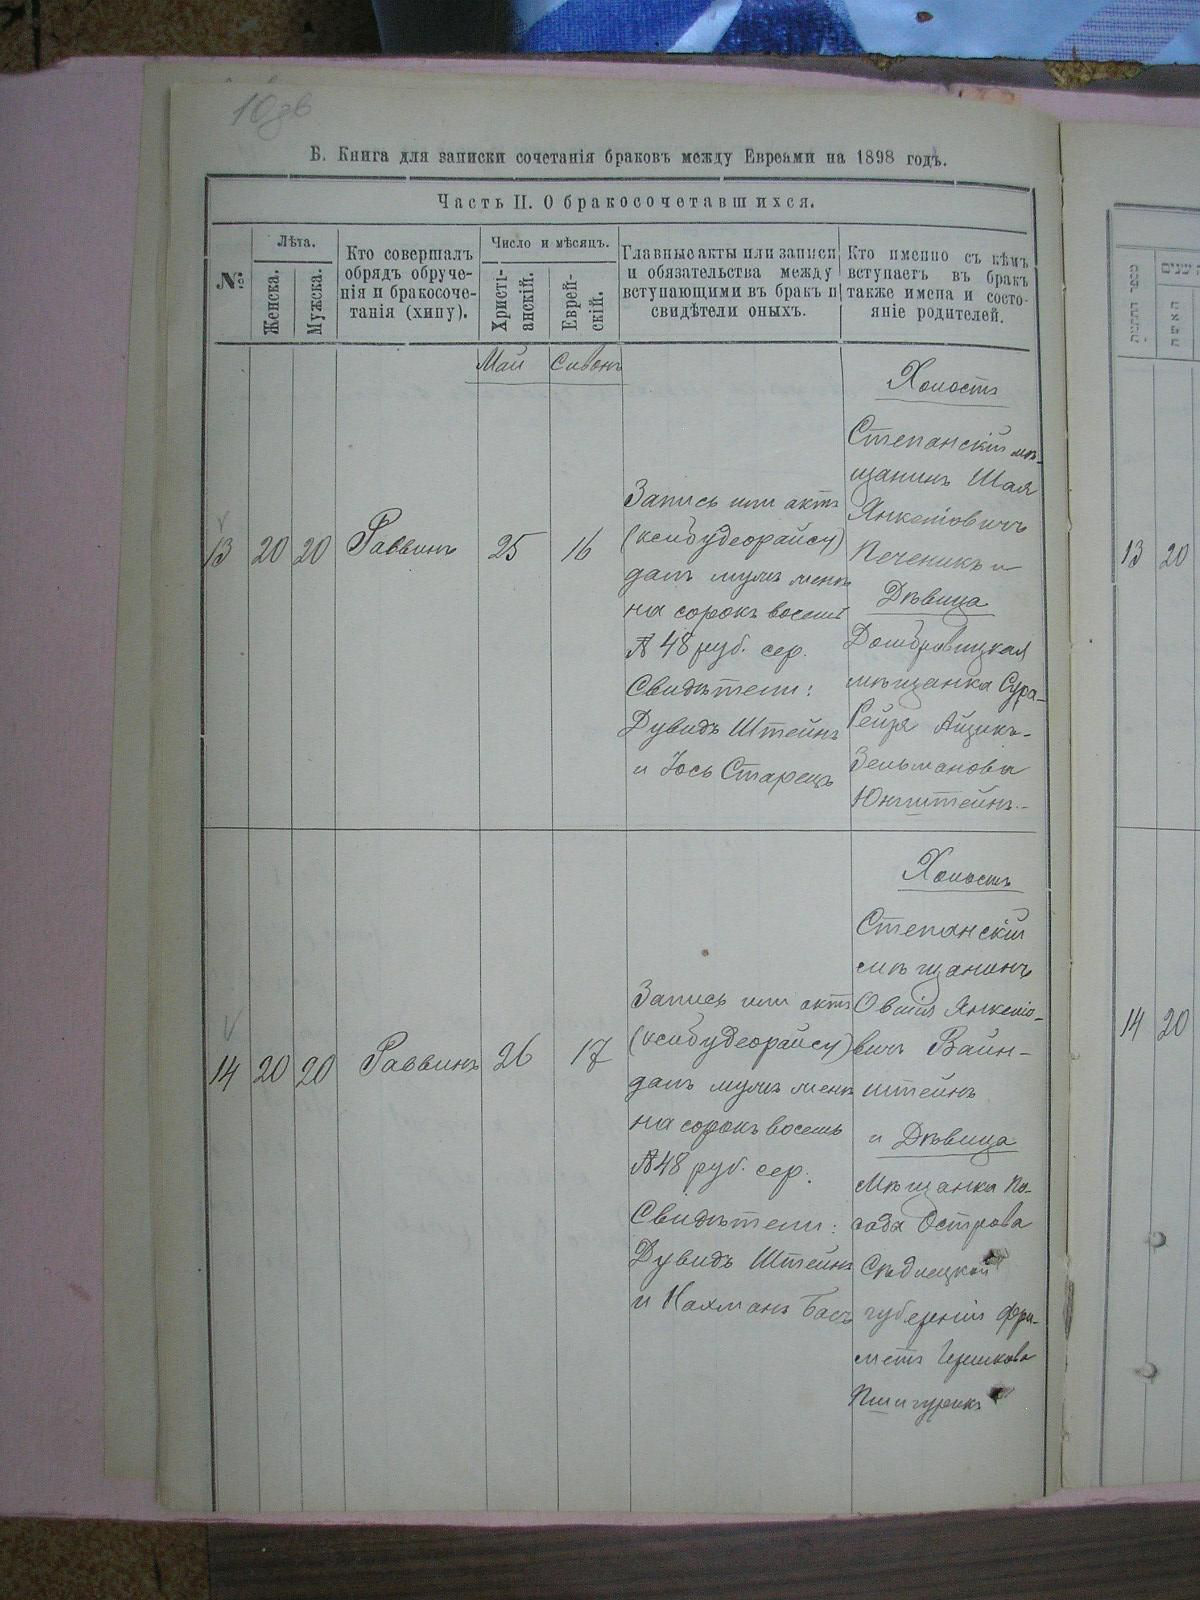 10об
Б. Книга для записи сочетанія браковъ между Евреями на 1898 годъ.
Часть II. О бракосочетавшихся.
№:
Лѣта.
Женска.
Мужска.
Кто совершалъ
обрядъ обруче-
нія и бракосоче-
танія (хипу).
Число и мѣсяцъ.
Христі-
анскій.
Еврей-
скій.
Главные акты или записи
и обязательства между
вступающими въ бракъ и
свидѣтели оныхъ.
Кто именно съ кѣмъ
вступаетъ въ бракъ
также имена и состо-
яніе родителей.
Май
Сивонъ
13
20
20
Раввинъ
25
16
Запись или актъ
(ксибудеорайсу)
далъ мужъ женѣ
на сорокъ восемь
48 руб. сер.
Свидѣтели:
Дувидъ Штейнъ
и Іось Старецъ
Холостъ
Степанскій мѣ-
щанинъ Шая
Янкелювичъ
Печеникъ и
Дѣвица
Домбровицкая
мѣщанка Сура-
Рейзя Айзикъ-
Зельманова
Юнгштейнъ.-
14
20
20
Раввинъ
26
17
Запись или актъ
(ксибудеорайсу)
далъ мужъ женѣ
на сорокъ восемь
48 руб. сер.
Свидѣтели:
Дувидъ Штейнъ
и Нахманъ Басъ
Холостъ
Степанскій
мѣщанинъ
Овшія Янкелю-
вичъ Вайн-
штейнъ
и Дѣвица
Мѣщанка по-
сада Острова
Сѣдлецкой
губерніи Фри-
метъ Гершкова
13 20
14 20